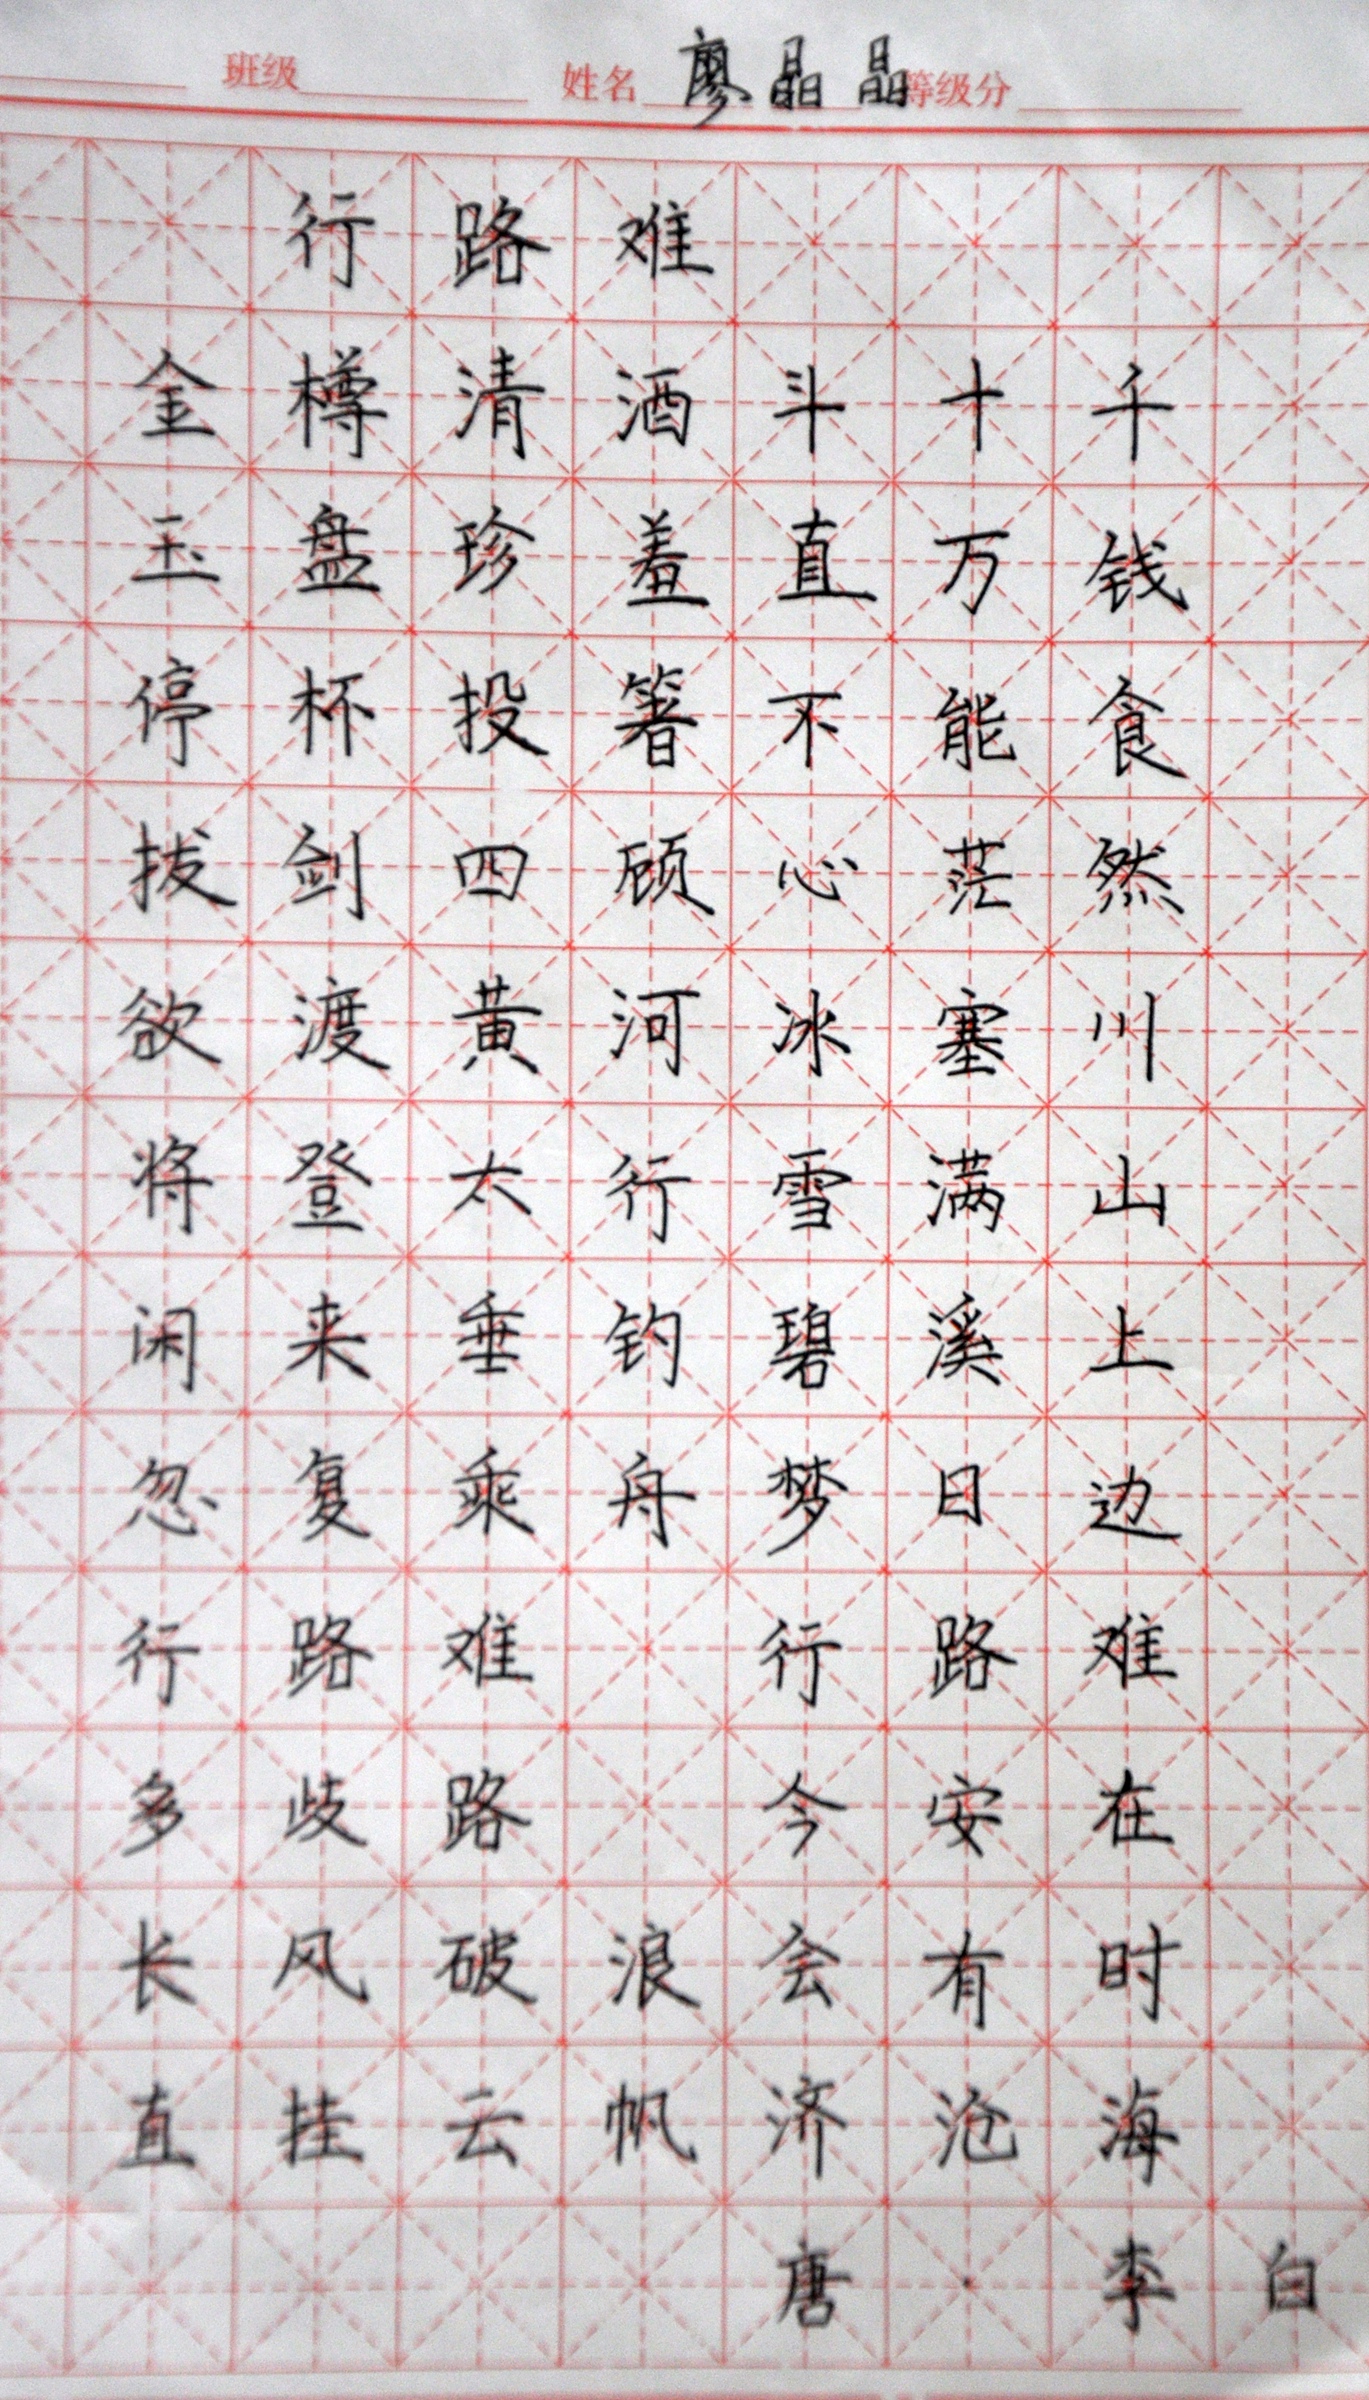 班级 姓名 廖晶晶 等级分
行路难
金樽清酒斗十千
玉盘珍羞直万钱
停杯投箸不能食
拔剑四顾心茫然
欲渡黄河冰塞川
将登太行雪满山
闲来垂钓碧溪上
忽复乘舟梦日边
行路难 行路难
多歧路 今安在
长风破浪会有时
直挂云帆济沧海
唐·李白